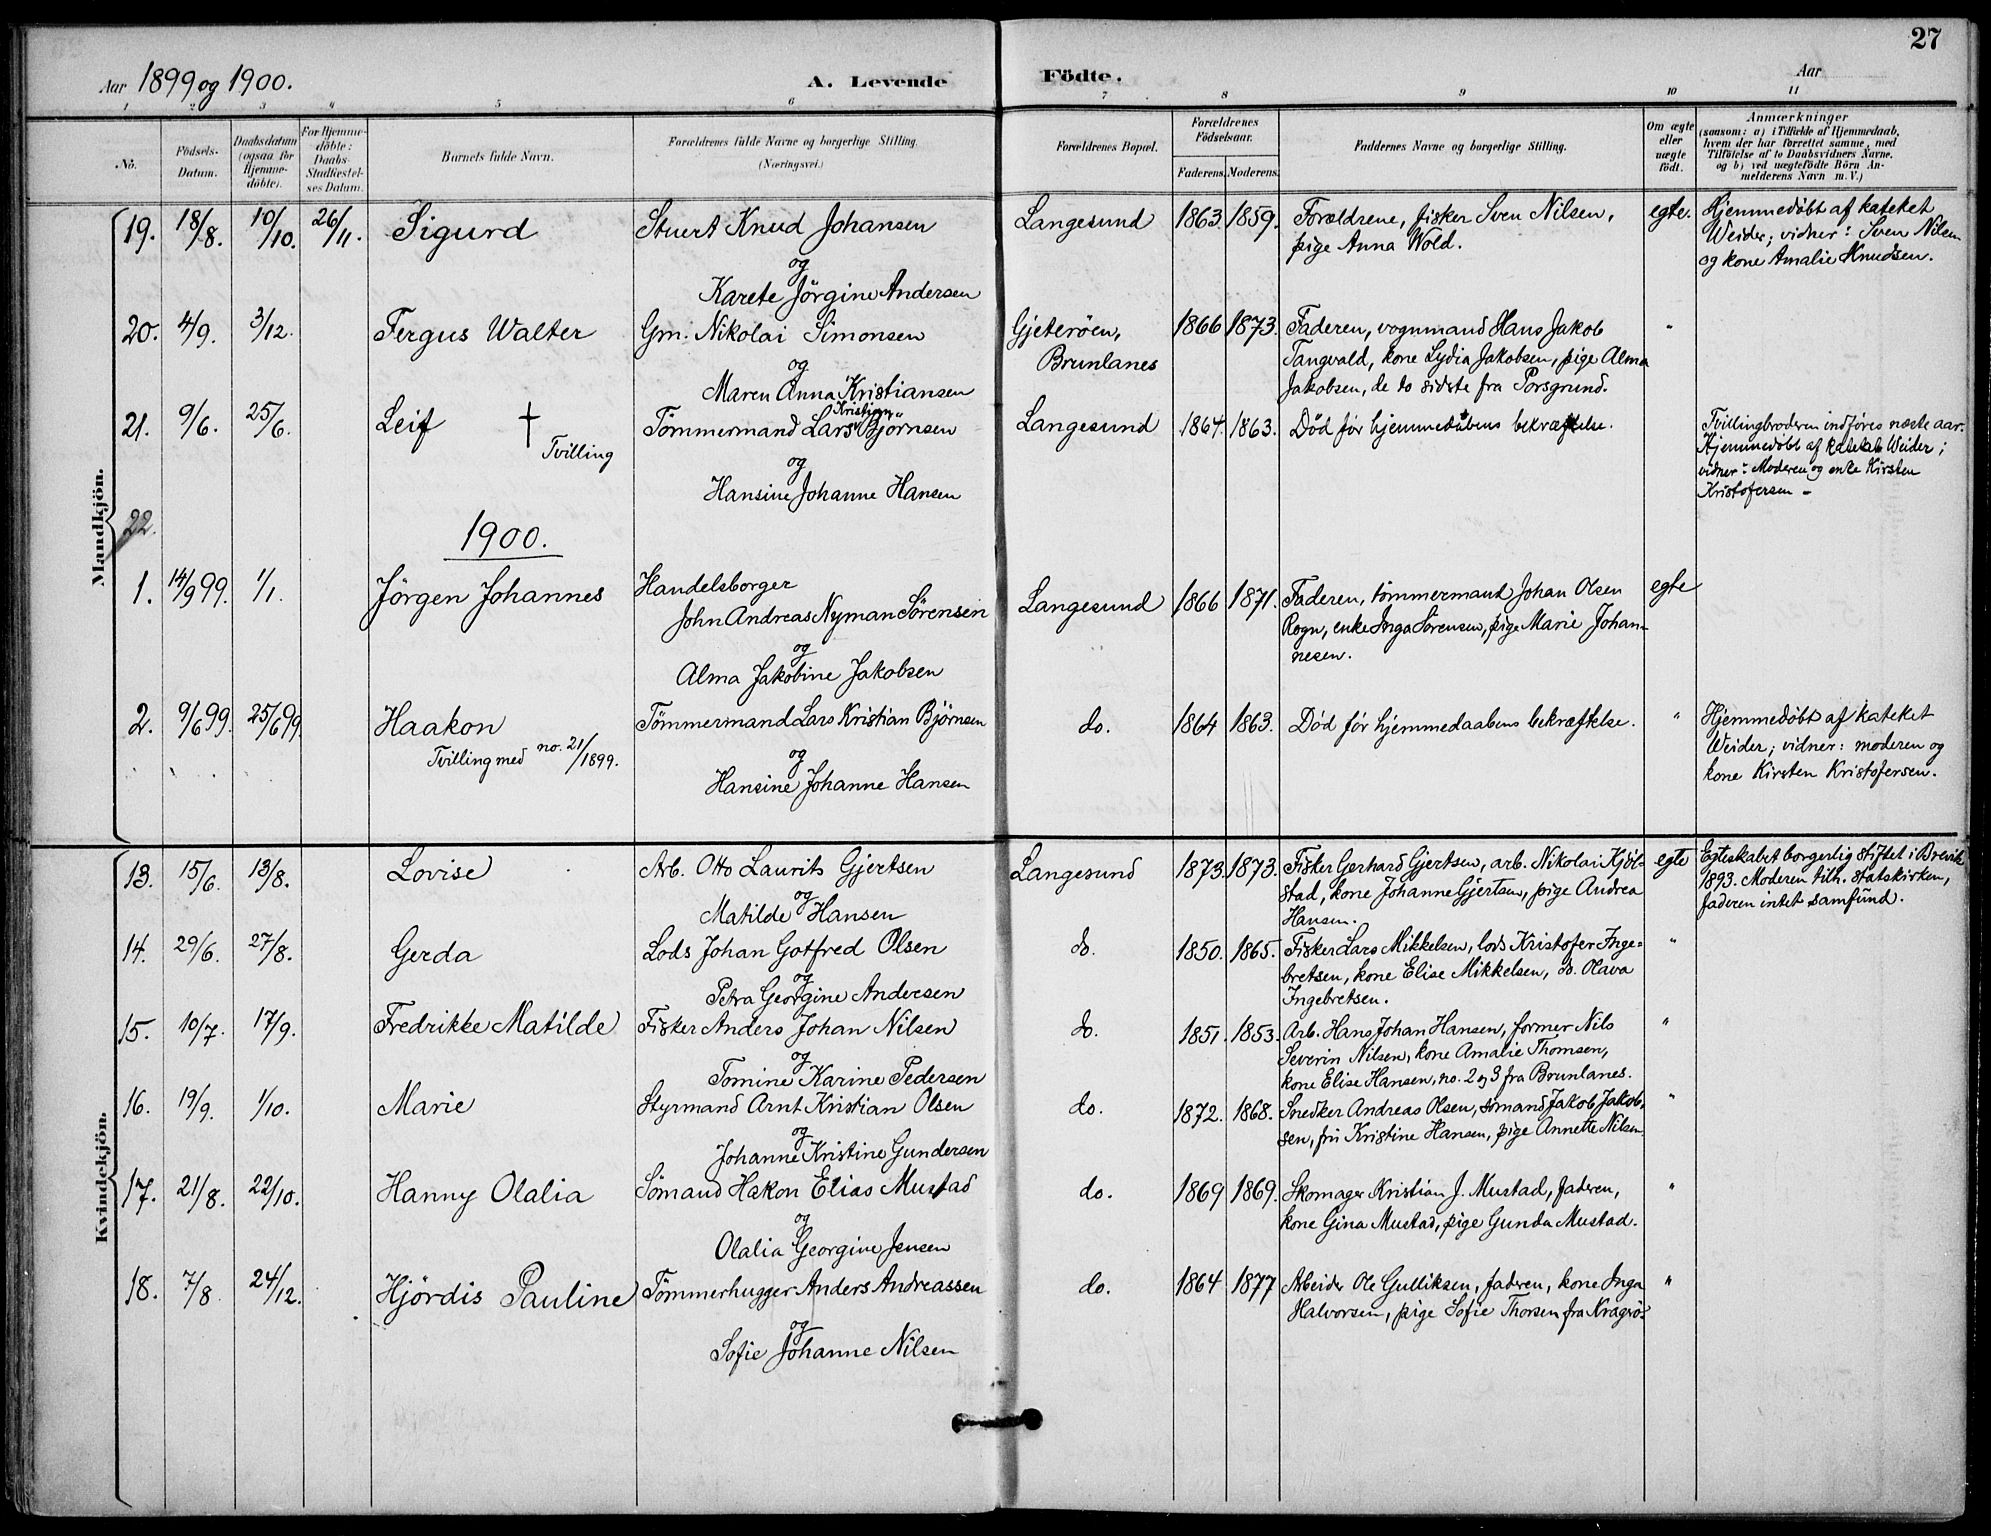 27
Aar 1899 og 1900.
A. Levende Födte.
Aar
1 2 3 4 5 6 7 8 9 10 11
No.
Födsels-Datum.
Daabsdatum (ogsaa for Hjemme-döbte).
For Hjemme-döbte: Daabs-Stadfæstel-ses Datum.
Barnets fulde Navn.
Forældrenes fulde Navne og borgerlige Stilling. (Næringsvei.)
Forældrenes Bopæl.
Forældrenes Födselsaar.
Faderens. Moderens.
Faddernes Navne og borgerlige Stilling.
Om ægte eller uægte födt.
Anmærkninger
(saasom: a) i Tilfælde af Hjemmedaab,
hvem der har forrettet samme, med
Tilföielse af to Daabsvidners Navne,
og b) ved uægtefödte Börn An-
melderens Navn m. V.)
Mandkjön.
19. 18/8. 10/10. 26/11. Sigurd Stuert Knud Johansen Langesund 1863 1859. Forældrene, fisker Sven Nilsen, egte. Hjemmedøbt af kateket
pige Anna Wold. Weider; vidner: Sven Nilsen
og og kone Amalie Knudsen.
Karete Jörgine Andersen
20. 4/9. 3/12. Fergus Walter Gm. Nikolai Simonsen Gjeterøen, 1866 1873. Faderen, vognmand Hans Jakob "
og Brunlanes Tangvald, kone Lydia Jakobsen, pige Alma
Maren Anna Kristiansen Jakobsen, de to sidste fra Porsgrund.
21. 9/6. 25/6. Leif † Tvilling Tömmermand Lars Kristian Björnsen Langesund 1864. 1863. Død før hjemmedaabens bekræftelse. Tvillingbroderen indføres næste aar.
og Hjemmedøbt af kateket Weider;
Hansine Johanne Hansen vidner: Moderen og enke Kirsten
Kristofersen -
22.
1900.
1. 14/9 99. 1/1. Jörgen Johannes Handelsborger Langesund 1866 1871. Faderen, tømmermand Johan Olsen egte
John Andreas Nyman Sörensen Rogn, enke Inga Sørensen, pige Marie Johan-
og nesen.
Alma Jakobine Jakobsen
2. 9/6 99. 25/6 99. Haakon Tömmermand Lars Kristian Björnsen do. 1864 1863. Död för hjemmedaabens bekræftelse. " Hjemmedøbt af kateket
Tvilling med no. 21/1899. og Weider; vidner: moderen og
Hansine Johanne Hansen kone Kirsten Kristofersen.
Kvindekjön.
13. 15/6. 13/8. Lovise Arb. Otto Laurits Gjertsen Langesund 1873. 1873. Fisker Gerhard Gjertsen, arb. Nikolai Kjöl- egte Egteskabet borgerlig stiftet i Brevik
og stad, kone Johanne Gjertsen, pige Andrea 1893. Moderen tilh. statskirken,
Matilde Hansen Hansen. faderen intet samfund.
14. 29/6. 27/8. Gerda Lods Johan Gotfred Olsen do. 1850. 1865. Fisker Lars Mikkelsen, lods Kristofer Inge- "
og bretsen, kone Elise Mikkelsen, do. Olava
Petra Georgine Andersen Ingebretsen.
15. 10/7. 17/9. Fredrikke Matilde Fisker Anders Johan Nilsen do. 1851. 1853. Arb. Hans Johan Hansen, former Nils "
og Severin Nilsen, kone Amalie Thomsen,
Tomine Karine Pedersen kone Elise Hansen, no. 2 og 3 fra Brunlanes.
16. 19/9. 1/10. Marie Styrmand Arnt Kristian Olsen do. 1872. 1868. Snedker Andreas Olsen, sömand Jakob Jakob- "
og sen, fru Kristine Hansen, pige Annette Nilsen.
Johanne Kristine Gundersen
17. 21/8. 22/10. Hanny Olalia Sömand Hakon Elias Mustad do. 1869 1869. Skomager Kristian J. Mustad, faderen, "
og kone Gina Mustad, pige Gunda Mustad.
Olalia Georgine Jensen
18. 7/8 24/12. Hjördis Pauline Tömmerhugger Anders Andreassen do. 1864 1877 Arbeider Ole Gulliksen, faderen, kone Inga "
og Halvorsen, pige Sofie Thorsen fra Kragerö.
Sofie Johanne Nilsen